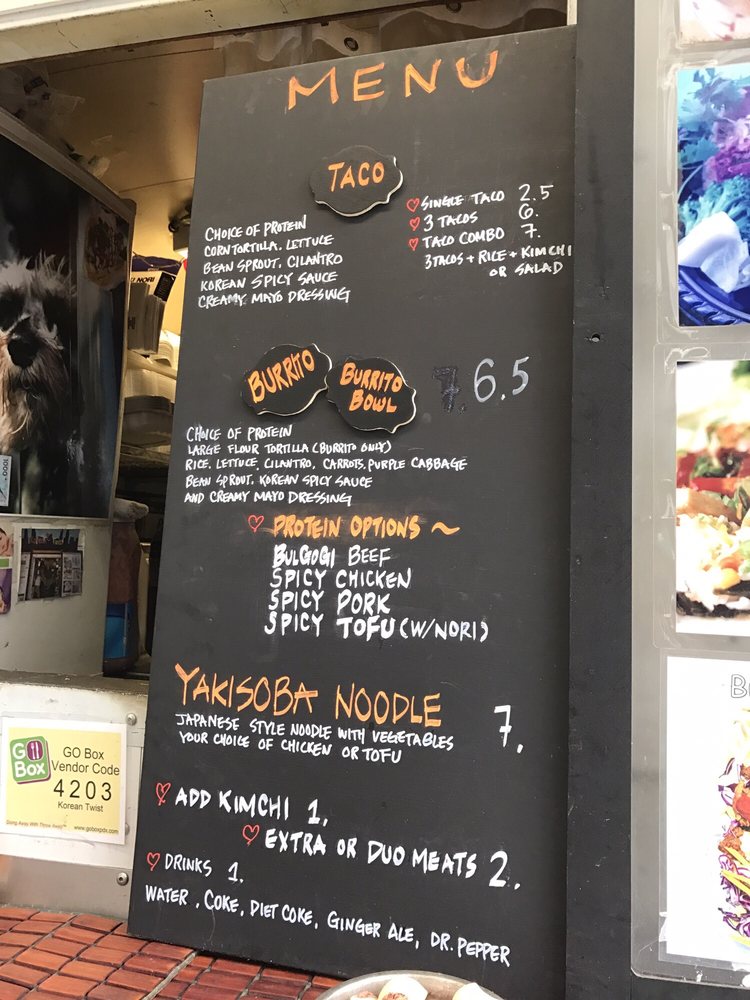 MENU
TACO
CHOICE OF PROTEIN
CORN TORTILLA, LETTUCE
BEAN SPROUT, CILANTRO
KOREAN SPICY SAUCE
CREAMY MAYO DRESSING
SINGLE TACO 2.5
3 TACOS 6.
TACO COMBO 7.
3TACOS + RICE + KIMCHI
OR SALAD
BURRITO
BURRITO
BOWL
7. 6.5
CHOICE OF PROTEIN
LARGE FLOUR TORTILLA (BURRITO ONLY)
RICE, LETTUCE, CILANTRO, CARROTS, PURPLE CABBAGE
BEAN SPROUT, KOREAN SPICY SAUCE
AND CREAMY MAYO DRESSING
PROTEIN OPTIONS ~
BULGOGI BEEF
SPICY CHICKEN
SPICY PORK
SPICY TOFU (W/NORI)
YAKISOBA NOODLE 7.
JAPANESE STYLE NOODLE WITH VEGETABLES
YOUR CHOICE OF CHICKEN OR TOFU
ADD KIMCHI 1.
EXTRA OR DUO MEATS 2.
DRINKS 1.
WATER, COKE, DIET COKE, GINGER ALE, DR. PEPPER
GO
Box
GO Box
Vendor Code
4203
Korean Twist
www.goboxpdx.com
NORI
1000